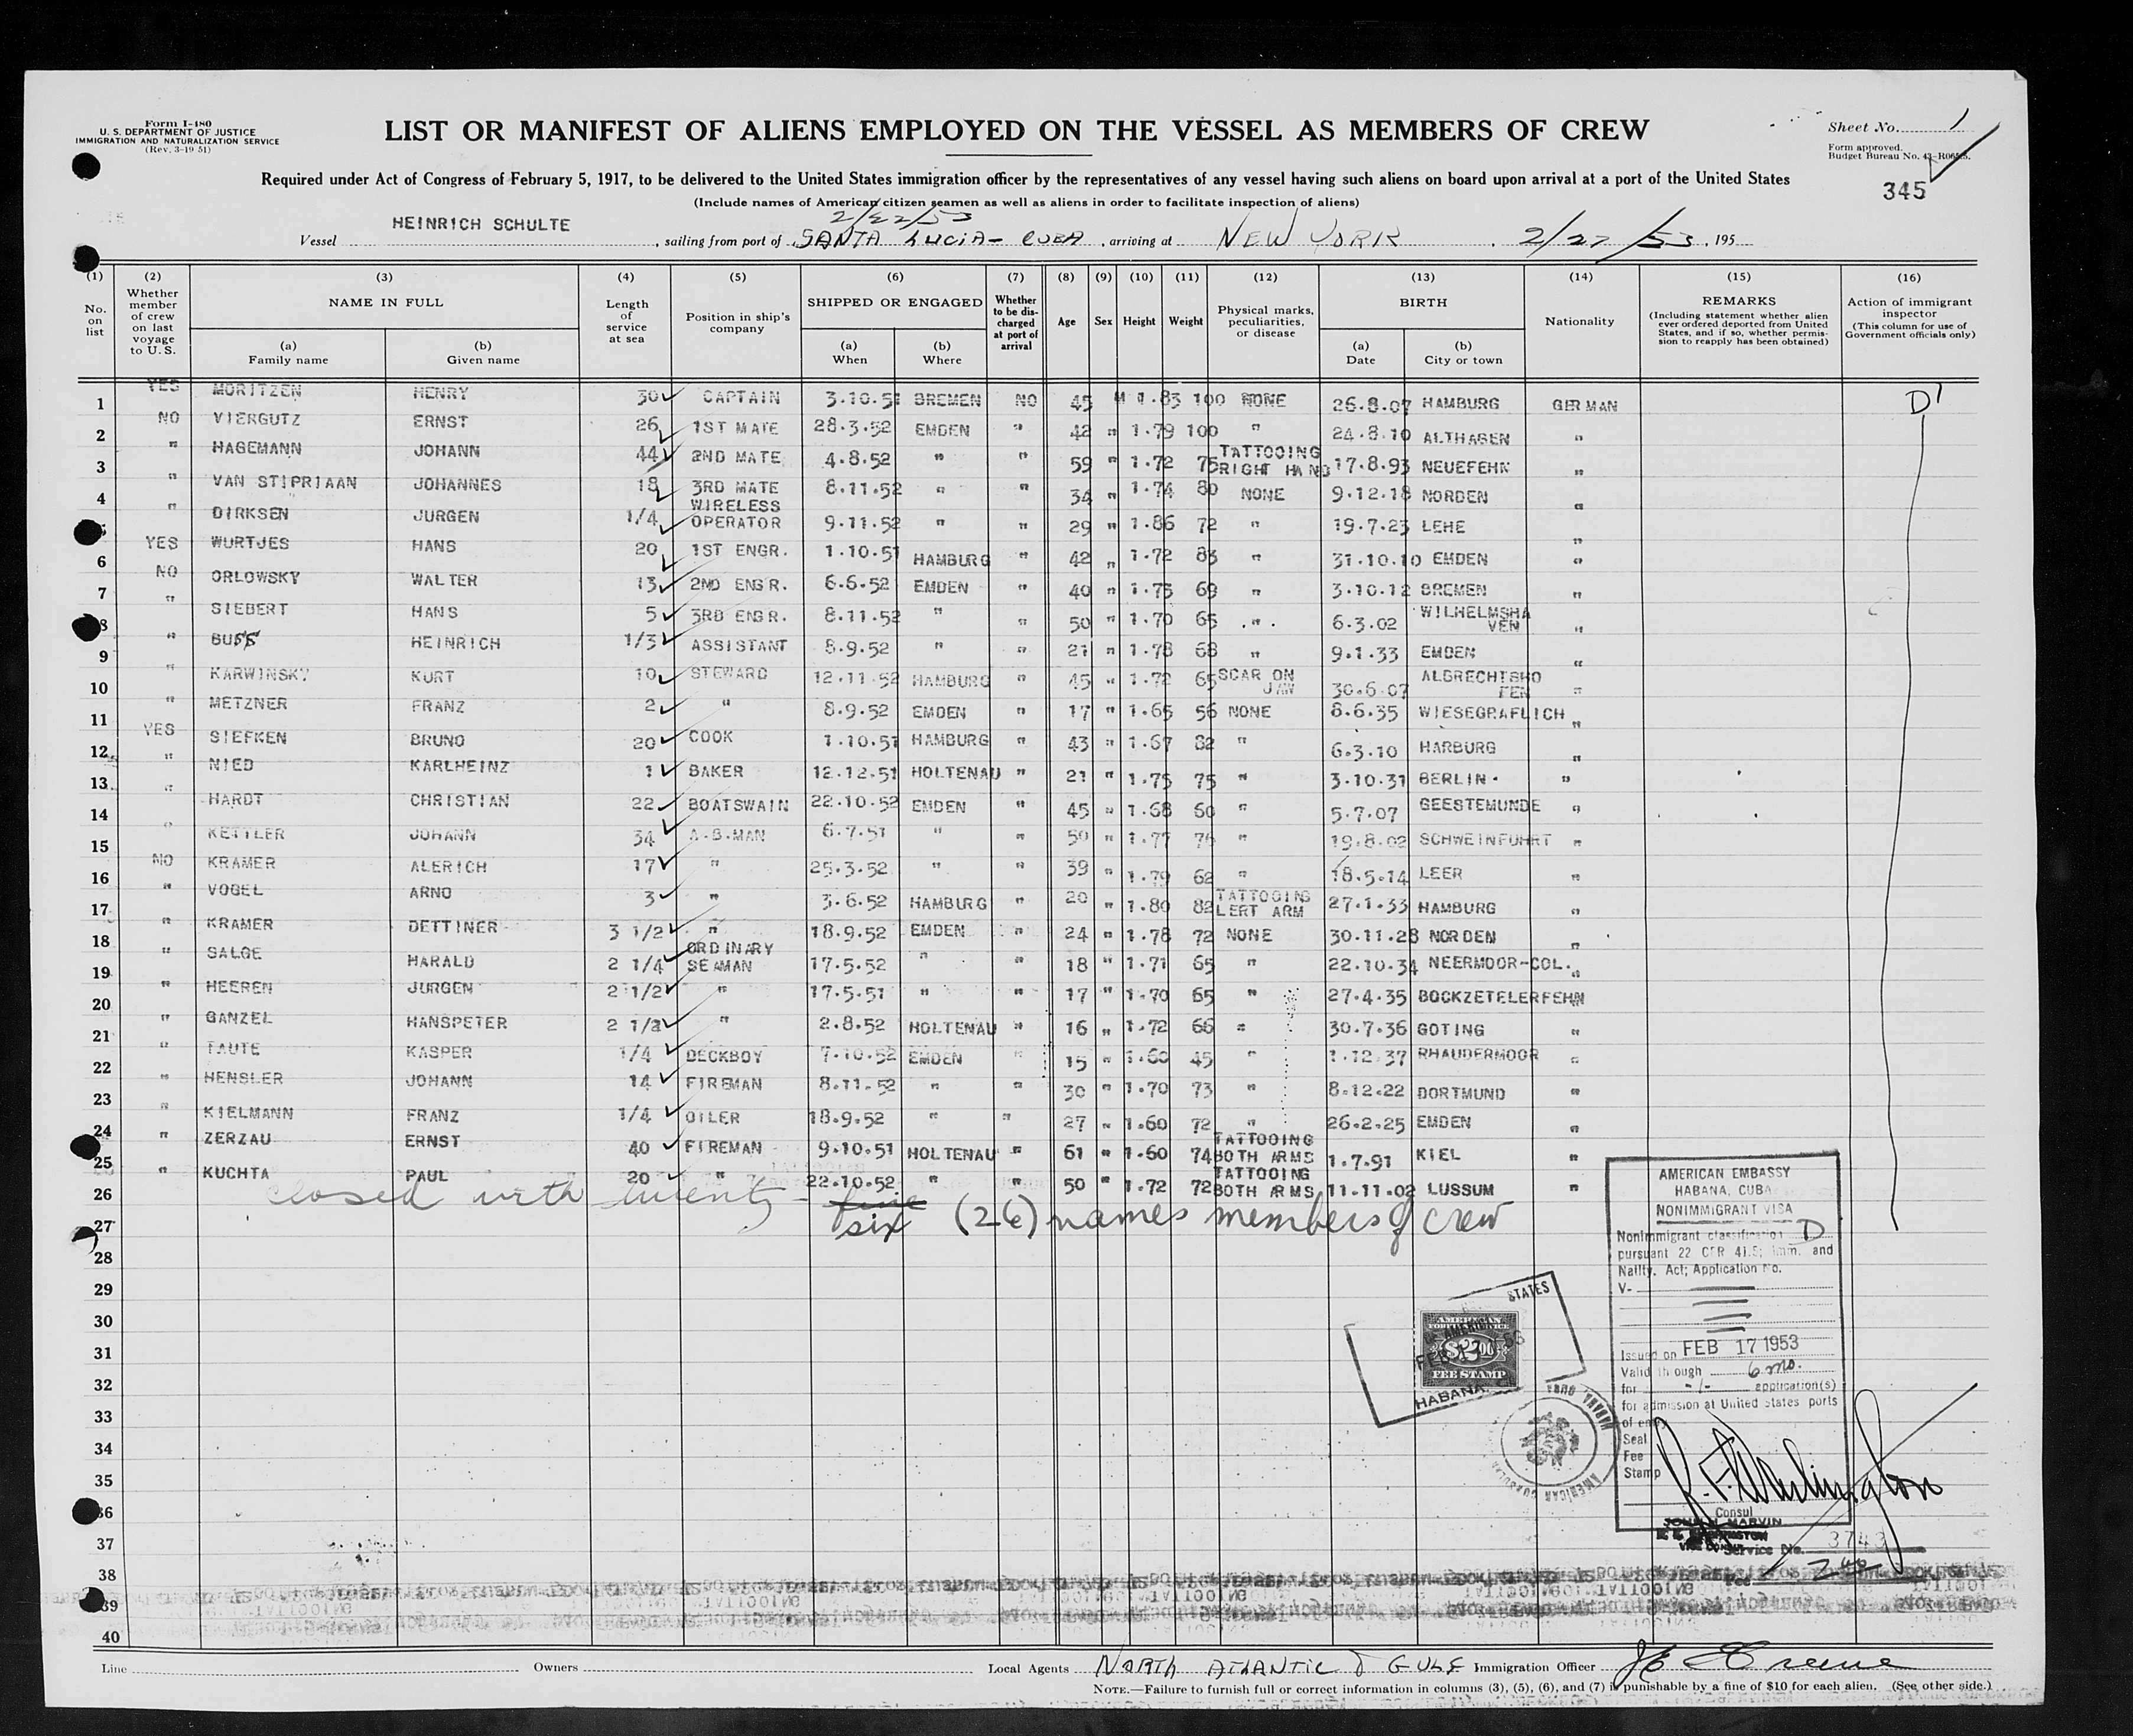 Form I-480
U. S. DEPARTMENT OF JUSTICE
IMMIGRATION AND NATURALIZATION SERVICE
(Rev. 3-19 51)
LIST OR MANIFEST OF ALIENS EMPLOYED ON THE VESSEL AS MEMBERS OF CREW
Sheet No. 1
Form approved.
Budget Bureau No.
Required under Act of Congress of February 5, 1917, to be delivered to the United States immigration officer by the representatives of any vessel having such aliens on board upon arrival at a port of the United States
345
(Include names of American citizen seamen as well as aliens in order to facilitate inspection of aliens)
2/22/53
Vessel HEINRICH SCHULTE , sailing from port of SANTA LUCIA - CUBA , arriving at NEW YORK , 2/27/53 , 195
(1) (2) (3) (4) (5) (6) (7) (8) (9) (10) (11) (12) (13) (14) (15) (16)
No. on list
Whether member of crew on last voyage to U. S.
NAME IN FULL
(a) Family name
(b) Given name
Length of service at sea
Position in ship's company
SHIPPED OR ENGAGED
(a) When
(b) Where
Whether to be discharged at port of arrival
Age Sex Height Weight
Physical marks, peculiarities, or disease
BIRTH
(a) Date
(b) City or town
Nationality
REMARKS
(Including statement whether alien ever ordered deported from United States, and if so, whether permission to reapply has been obtained)
Action of immigrant inspector
(This column for use of Government officials only)
1 YES MORITZEN HENRY 30 CAPTAIN 3.10.51 BREMEN NO 45 M 1.83 100 NONE 26.8.07 HAMBURG GERMAN D1
2 NO VIERGUTZ ERNST 26 1ST MATE 28.3.52 EMDEN " 42 " 1.79 100 " 24.8.10 ALTHAGEN "
3 " HAGEMANN JOHANN 44 2ND MATE 4.8.52 " " 59 " 1.72 75 TATTOOING RIGHT HAND 17.8.93 NEUEFEHN "
4 " VAN STIPRIAAN JOHANNES 18 3RD MATE 8.11.52 " " 34 " 1.74 80 NONE 9.12.18 NORDEN "
5 " DIRKSEN JURGEN 1/4 WIRELESS OPERATOR 9.11.52 " " 29 " 1.86 72 " 19.7.23 LEHE "
6 YES WURTJES HANS 20 1ST ENGR. 1.10.51 HAMBURG " 42 " 1.72 83 " 31.10.10 EMDEN "
7 NO ORLOWSKY WALTER 13 2ND ENGR. 6.6.52 EMDEN " 40 " 1.75 69 " 3.10.12 BREMEN "
8 " SIEBERT HANS 5 3RD ENGR. 8.11.52 " " 50 " 1.70 65 " 6.3.02 WILHELMSHAVEN "
9 " BUSS HEINRICH 1/3 ASSISTANT 8.9.52 " " 21 " 1.78 68 " 9.1.33 EMDEN "
10 " KARWINSKY KURT 10 STEWARD 12.11.52 HAMBURG " 45 " 1.72 65 SCAR ON JAW 30.6.07 ALBRECHTSHOFEN "
11 " METZNER FRANZ 2 " 8.9.52 EMDEN " 17 " 1.65 56 NONE 8.6.35 WIESEGRAFLICH "
12 YES SIEFKEN BRUNO 20 COOK 1.10.51 HAMBURG " 43 " 1.67 82 " 6.3.10 HARBURG "
13 " NIED KARLHEINZ 1 BAKER 12.12.51 HOLTENAU " 21 " 1.75 75 " 3.10.31 BERLIN. "
14 " HARDT CHRISTIAN 22 BOATSWAIN 22.10.52 EMDEN " 45 " 1.68 60 " 5.7.07 GEESTEMUNDE "
15 " KETTLER JOHANN 34 A.B.MAN 6.7.51 " " 50 " 1.77 76 " 19.8.02 SCHWEINFUHRT "
16 NO KRAMER ALERICH 17 " 25.3.52 " " 39 " 1.79 62 " 18.5.14 LEER "
17 " VOGEL ARNO 3 " 3.6.52 HAMBURG " 20 " 1.80 82 TATTOOING LERT ARM 27.1.33 HAMBURG "
18 " KRAMER DETTINER 3 1/2 " 18.9.52 EMDEN " 24 " 1.78 72 NONE 30.11.28 NORDEN "
19 " SALGE HARALD 2 1/4 ORDINARY SEAMAN 17.5.52 " " 18 " 1.71 65 " 22.10.34 NEERMOOR-COL. "
20 " HEEREN JURGEN 2 1/2 " 17.5.51 " " 17 " 1.70 65 " 27.4.35 BOCKZETELERFEHN "
21 " GANZEL HANSPETER 2 1/2 " 2.8.52 HOLTENAU " 16 " 1.72 66 " 30.7.36 GOTING "
22 " TAUTE KASPER 1/4 DECKBOY 7.10.52 EMDEN " 15 " 1.60 45 " 1.12.37 RHAUDERMOOR "
23 " HENSLER JOHANN 14 FIREMAN 8.11.52 " " 30 " 1.70 73 " 8.12.22 DORTMUND "
24 " KIELMANN FRANZ 1/4 OILER 18.9.52 " " 27 " 1.60 72 " 26.2.25 EMDEN "
25 " ZERZAU ERNST 40 FIREMAN 9.10.51 HOLTENAU " 61 " 1.60 74 TATTOOING BOTH ARMS 1.7.91 KIEL "
26 " KUCHTA PAUL 20 " 22.10.52 " " 50 " 1.72 72 TATTOOING BOTH ARMS 11.11.02 LUSSUM "
closed with twenty - five six (26) names members of crew
27
28
29
30
31
32
33
34
35
36
37
38
39
40
AMERICAN EMBASSY
HABANA, CUBA
NONIMMIGRANT VISA
Nonimmigrant classification D
pursuant 22 CFR 41.5; Imm. and
Natlty. Act; Application No.
V-
Issued on FEB 17 1953
Valid through 6 mo.
for -1- application(s)
for admission at United States ports
of entry
Seal
Fee
Stamp
Consul
JOHN H. MARVIN
Service No. 3743
Fee 2.00
STATES
AMERICAN
FEE STAMP
HABANA
Line Owners Local Agents NORTH ATLANTIC & GULF Immigration Officer
NOTE.—Failure to furnish full or correct information in columns (3), (5), (6), and (7) is punishable by a fine of $10 for each alien. (See other side.)